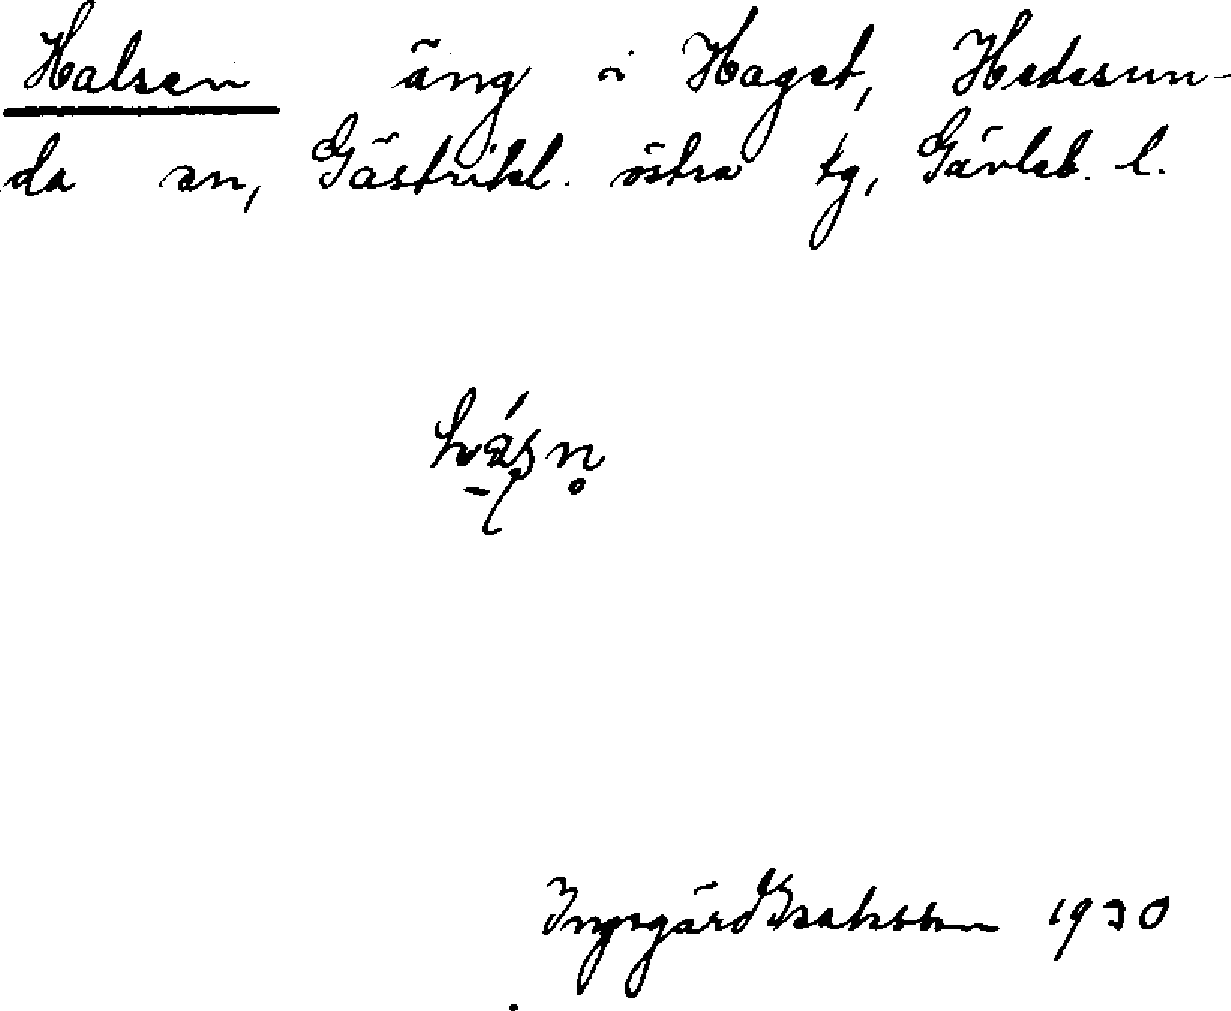 Halsen äng i Haget, Hedesun-
da sn, Gästrikl. östra tg, Gävleb. l.
Ingegärd Isaksson 1930